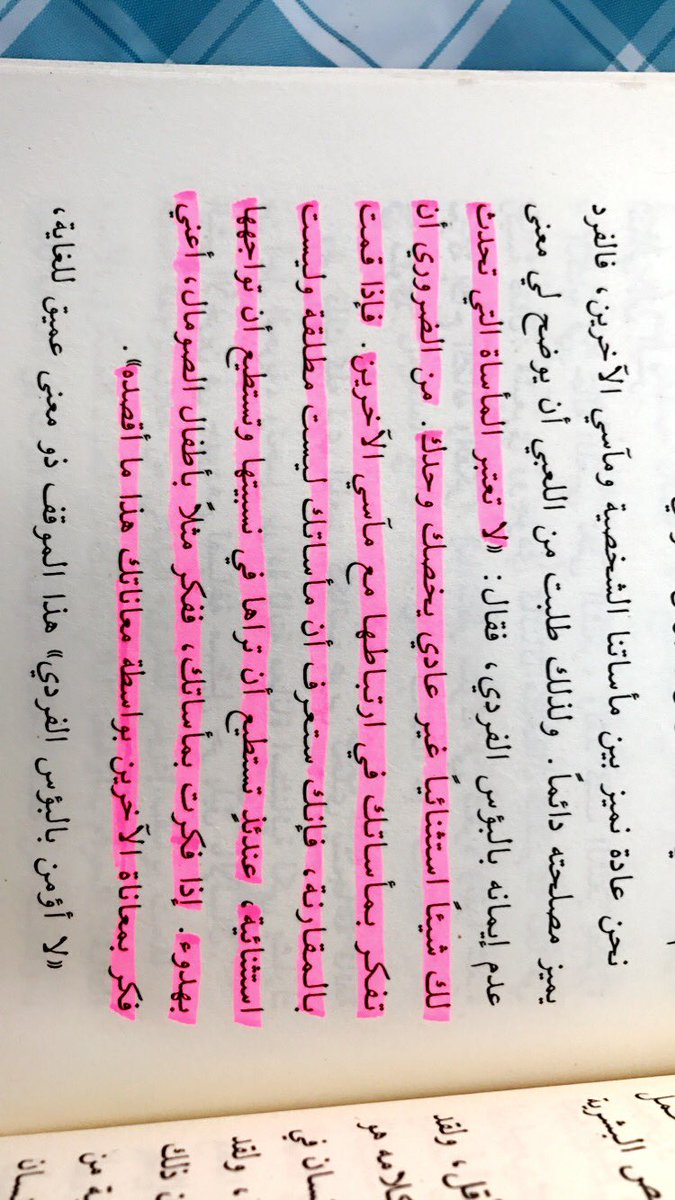 نحن عادة نميز بين مأساتنا الشخصية ومآسي الآخرين، فالفرد
يميز مصلحته دائماً. ولذلك طلبت من اللعبي أن يوضح لي معنى
عدم إيمانه بالبؤس الفردي، فقال: «لا تعتبر المأساة التي تحدث
لك شيئاً استثنائياً غير عادي يخصك وحدك. من الضروري أن
تفكر بمأساتك في ارتباطها مع مآسي الآخرين. فإذا قمت
بالمقارنة، فإنك ستعرف أن مأساتك ليست مطلقة وليست
استثنائية، عندئذٍ تستطيع أن تراها في نسبيتها وتستطيع أن تواجهها
بهدوء. إذا فكرت بمأساتك، ففكر مثلاً بأطفال الصومال، أعني
فكر بمعاناة الآخرين بواسطة معاناتك هذا ما أقصده».
«لا أؤمن بالبؤس الفردي» هذا الموقف ذو معنى عميق للغاية،
ص البشرية
قل، ولقد
كلامه هو
سان في
، ولقد
ن ذلك
ة من
سان